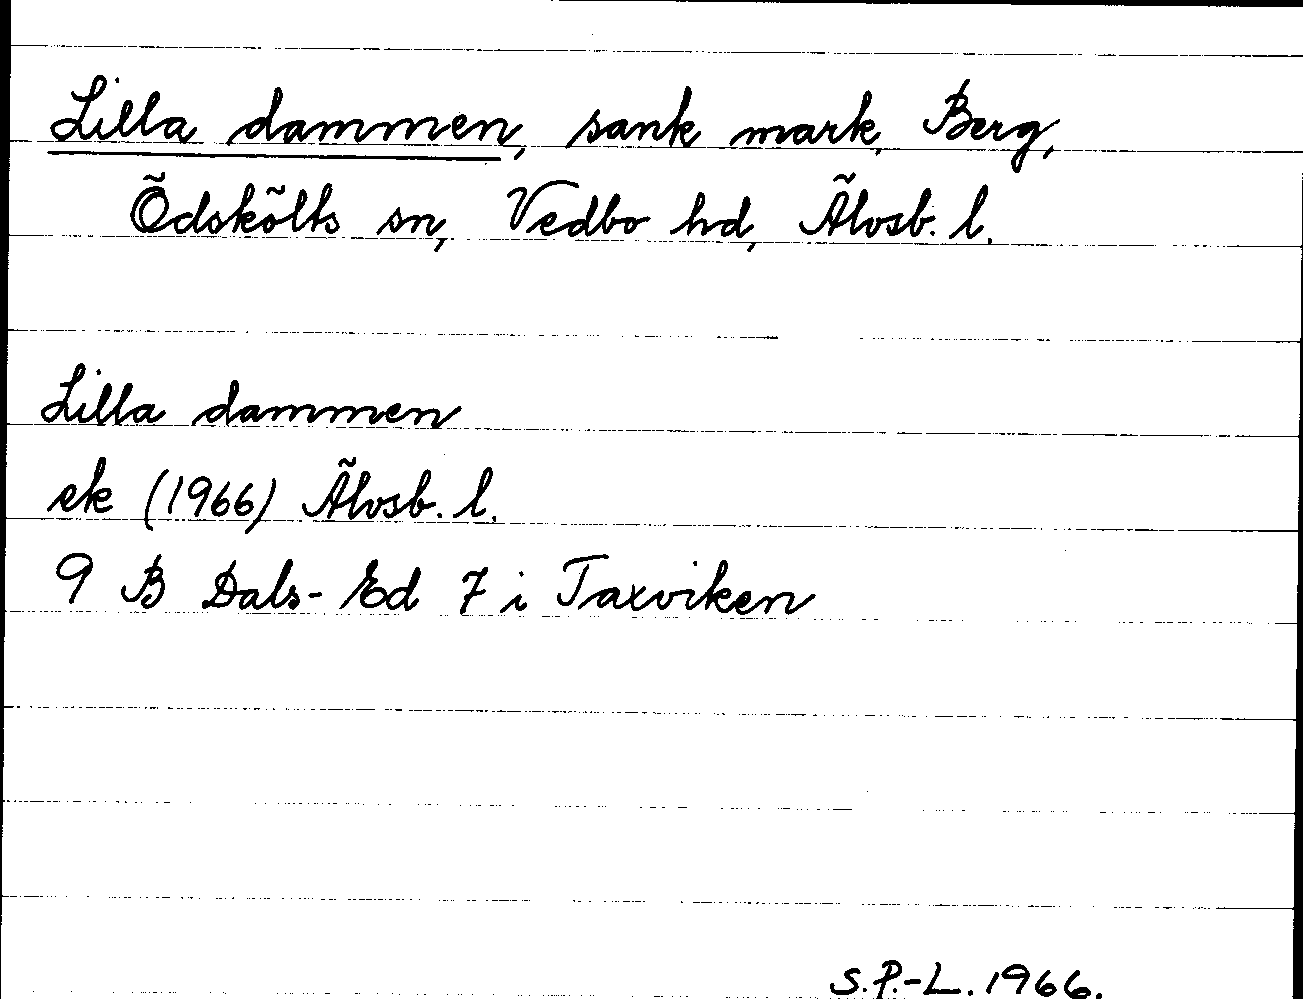 Lilla dammen, sank mark, Berg,
Ödskölts sn, Vedbo hd, Älvsb. l.
Lilla dammen
ek (1966) Älvsb. l.
9 B Dals-Ed 7 i Taxviken
S.P.-L. 1966.